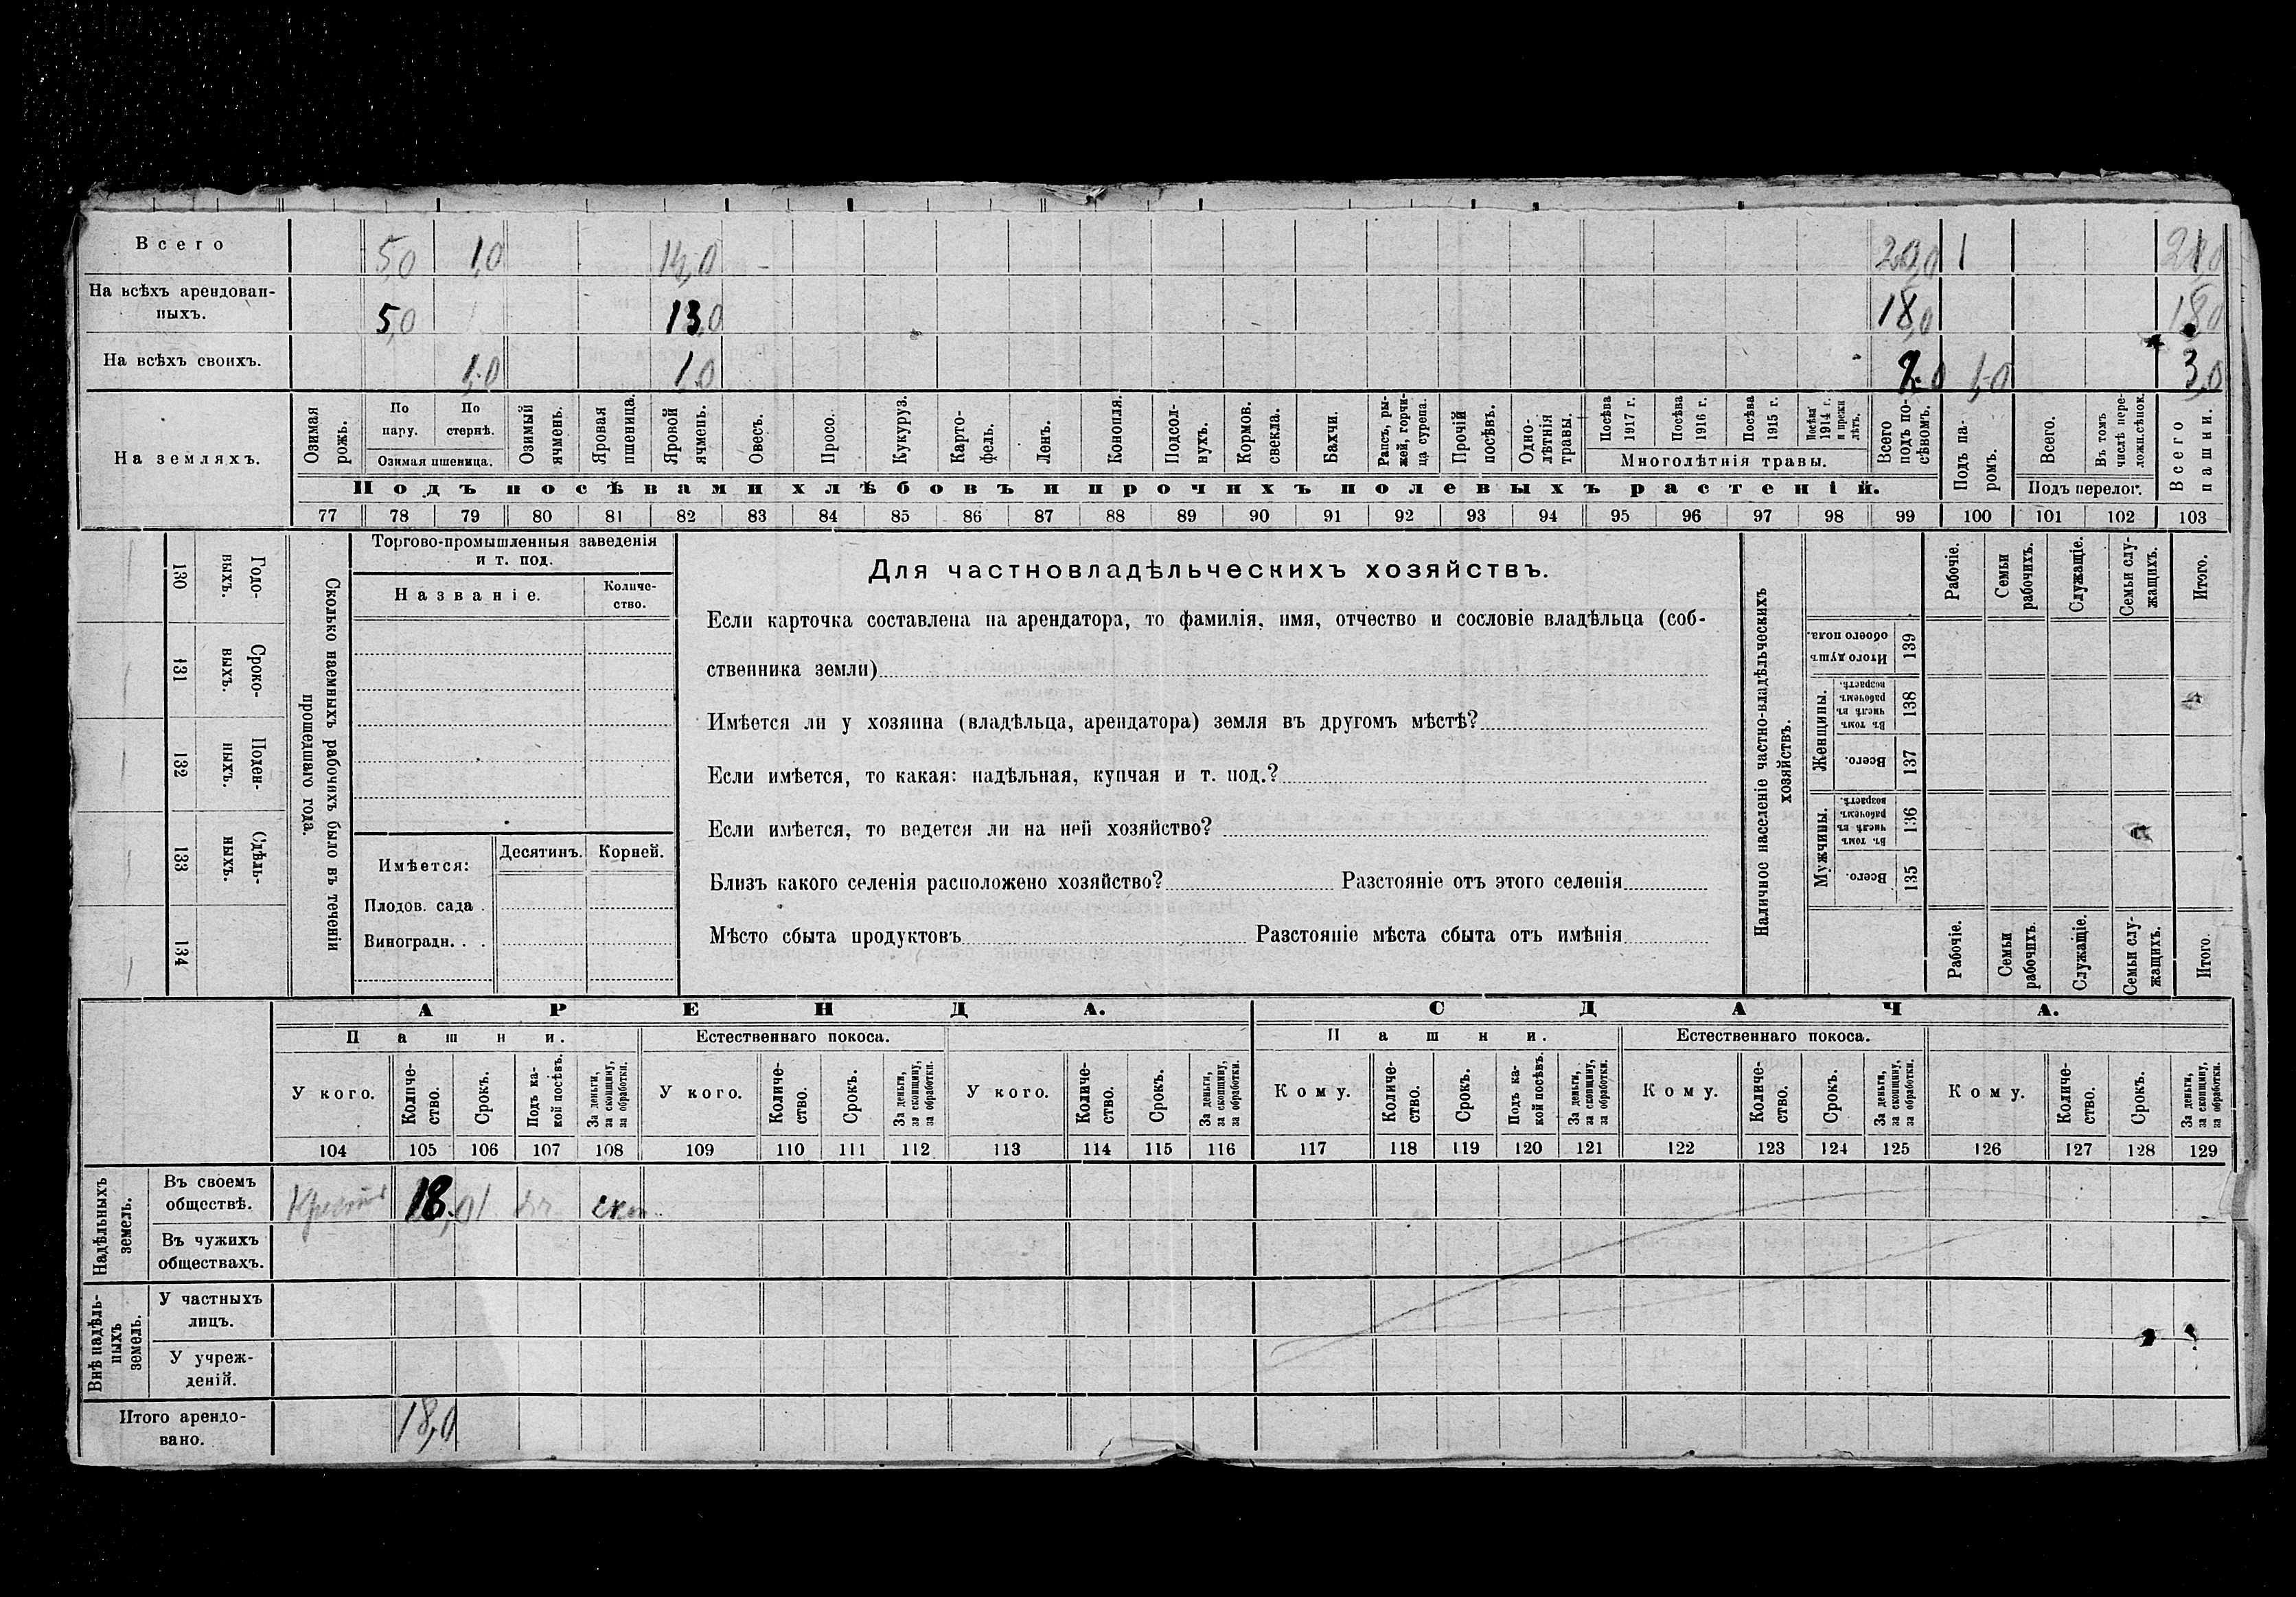 Всего 5,0 1,0 14,0 20,0 1 21,0
На всѣхъ арендован-
ныхъ. 5,0 13,0 18,0 18,0
На всѣхъ своихъ. 1,0 1,0 2,0 1,0 3,0
На земляхъ.
Озимая рожь.
По пару.
По стернѣ.
Озимая пшеница.
Озимый ячмень.
Яровая пшеница.
Яровой ячмень.
Овесъ.
Просо.
Кукуруз.
Карто-
фель.
Ленъ.
Конопля.
Подсол-
нухъ.
Кормов. свекла.
Бахчи.
Рапсъ, ры-
жей, горчи-
ца сурепа.
Прочій посѣвъ.
Одно-
лѣтнія травы.
Посѣва 1917 г.
Посѣва 1916 г.
Посѣва 1915 г.
Посѣва 1914 г. и прежн лѣтъ.
Многолѣтнія травы.
Всего подъ по-
сѣвомъ.
Подъ па-
ромъ.
Всего.
Въ томъ числѣ пере-
ложн.сѣнок.
Подъ перелог.
Всего пашни.
Подъ посѣвами хлѣбовъ и прочихъ полевыхъ растеній.
77 78 79 80 81 82 83 84 85 86 87 88 89 90 91 92 93 94 95 96 97 98 99 100 101 102 103
130 Годо-
выхъ.
131 Сроко-
выхъ.
132 Поден-
ныхъ.
133 Сдѣль-
ныхъ.
134
Сколько наемныхъ рабочихъ было въ теченіи
прошедшаго года.
Торгово-промышленныя заведенія
и т. под.
Названіе.
Количе-
ство.
Имѣется:
Десятинъ. Корней.
Плодов. сада .
Виноградн. . .
Для частновладѣльческихъ хозяйствъ.
Если карточка составлена на арендатора, то фамилія, имя, отчество и сословіе владѣльца (соб-
ственника земли)
Имѣется ли у хозяина (владѣльца, арендатора) земля въ другомъ мѣстѣ?
Если имѣется, то какая: надѣльная, купчая и т. под.?
Если имѣется, то ведется ли на ней хозяйство?
Близъ какого селенія расположено хозяйство? Разстояніе отъ этого селенія
Мѣсто сбыта продуктовъ Разстояніе мѣста сбыта отъ имѣнія
Наличное населеніе частно-владѣльческихъ
хозяйствъ.
Рабочіе.
Семьи рабочихъ.
Служащіе.
Семьи слу-
жащихъ.
Итого.
Итого душъ обоего пола. 139
Женщины.
Въ томъ числѣ въ рабочемъ возрастѣ. 138
Всего. 137
Мужчины.
Въ томъ числѣ въ рабочемъ возрастѣ. 136
Всего. 135
Рабочіе.
Семьи рабочихъ.
Служащіе.
Семьи слу-
жащихъ.
Итого.
АРЕНДА. СДАЧА.
Пашни. Естественнаго покоса. Пашни. Естественнаго покоса.
У кого.
Количе-
ство.
Срокъ.
Подъ ка-
кой посѣвъ.
За деньги, за скопщину, за обработки.
У кого.
Количе-
ство.
Срокъ.
За деньги, за скопщину, за обработки.
У кого.
Количе-
ство.
Срокъ.
За деньги, за скопщину, за обработки.
Кому.
Количе-
ство.
Срокъ.
Подъ ка-
кой посѣвъ.
За деньги, за скопщину, за обработки.
Кому.
Количе-
ство.
Срокъ.
За деньги, за скопщину, за обработки.
Кому.
Количе-
ство.
Срокъ.
За деньги, за скопщину, за обработки.
104 105 106 107 108 109 110 111 112 113 114 115 116 117 118 119 120 121 122 123 124 125 126 127 128 129
Надѣльныхъ
земель.
Въ своемъ
обществѣ. 18,0 1 скоп.
Въ чужихъ
обществахъ.
Внѣ надѣль-
ныхъ
земель.
У частныхъ
лицъ.
У учреж-
деній.
Итого арендо-
вано. 18,0